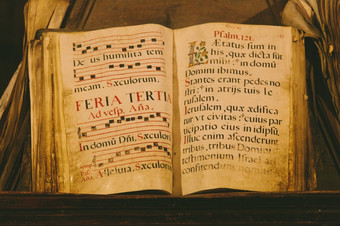 De us humilita tem
nicam. Sæculorum.
FERIA TERTIA
Ad vesp. Aña.
In domũ Dñi. Sæculorum.
Alleluia. Sæculorum.
Psalm. 121.
Lætatus sum in
his, quæ dicta sũt
mihi: * in domũ
Domini ibimus.
Stantes erant pedes no
stri: * in atrijs tuis Ie
rusalem.
Ierusalem, quæ ædifica
tur vt ciuitas: * cuius par
ticipatio eius in idipsũ.
Illuc enim ascenderunt
tribus, tribus Domini:
testimonium Israel ad
confitendum nomini